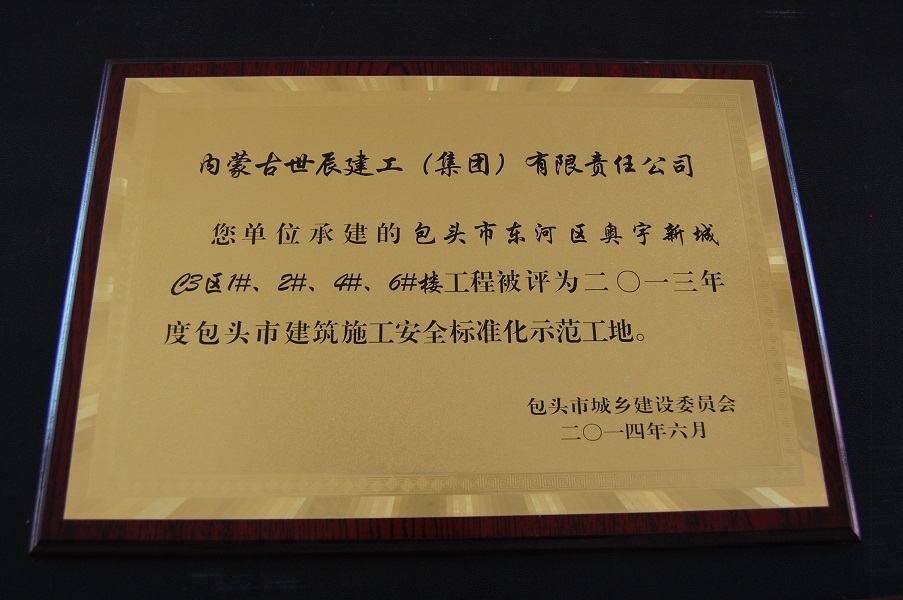 内蒙古世辰建工（集团）有限责任公司
您单位承建的包头市东河区奥宇新城
C3区1#、2#、4#、6#楼工程被评为二〇一三年
度包头市建筑施工安全标准化示范工地。
包头市城乡建设委员会
二〇一四年六月